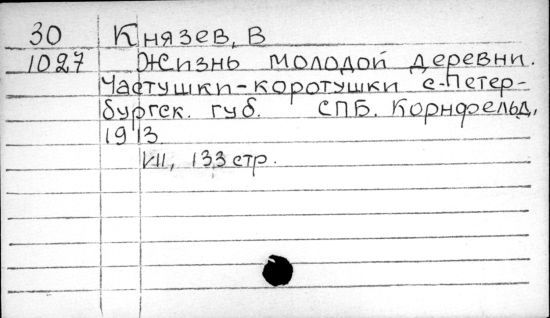 30 Князев, В
1027 Жизнь молодой деревни.
Частушки-коротушки с-Петер-
бургск. губ. СПБ. Корнфельд,
1913
VII, 133 стр.